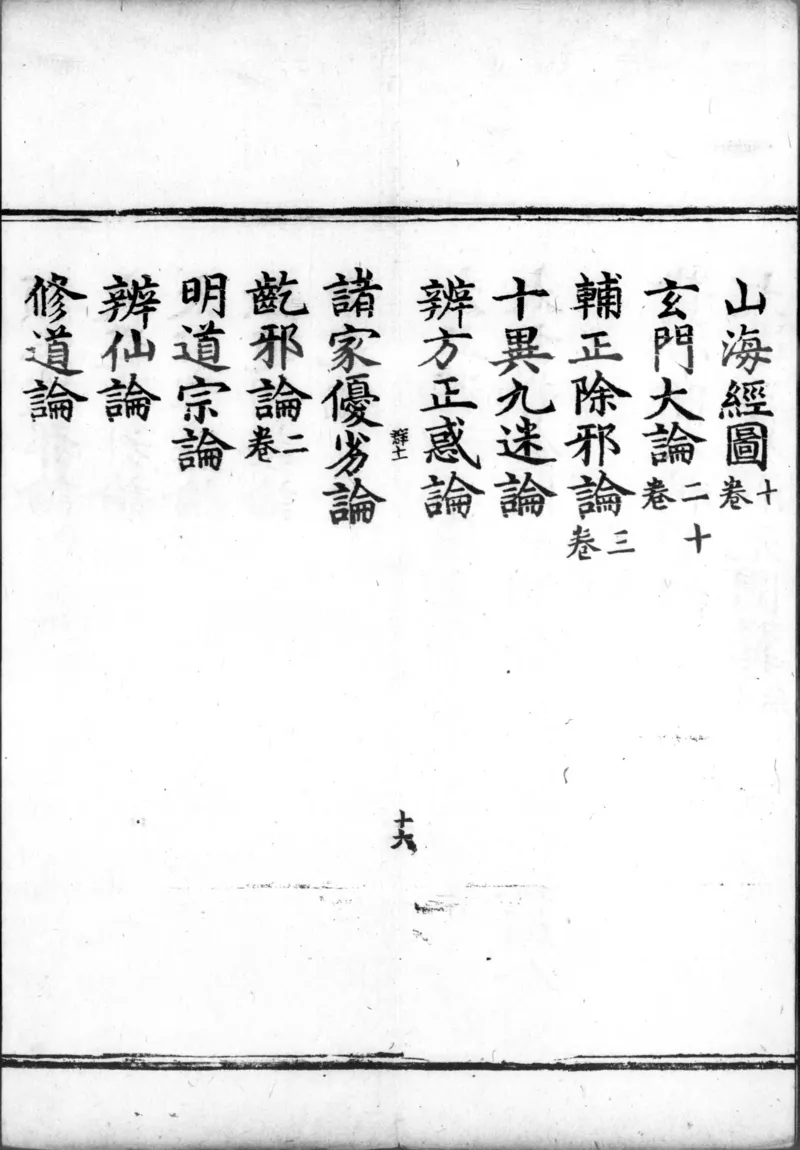 山海經圖十卷
玄門大論二十卷
輔正除邪論三卷
十異九迷論
辨方正惑論
十六
諸家優劣論
齕邪論二卷
明道宗論
辨仙論
修道論